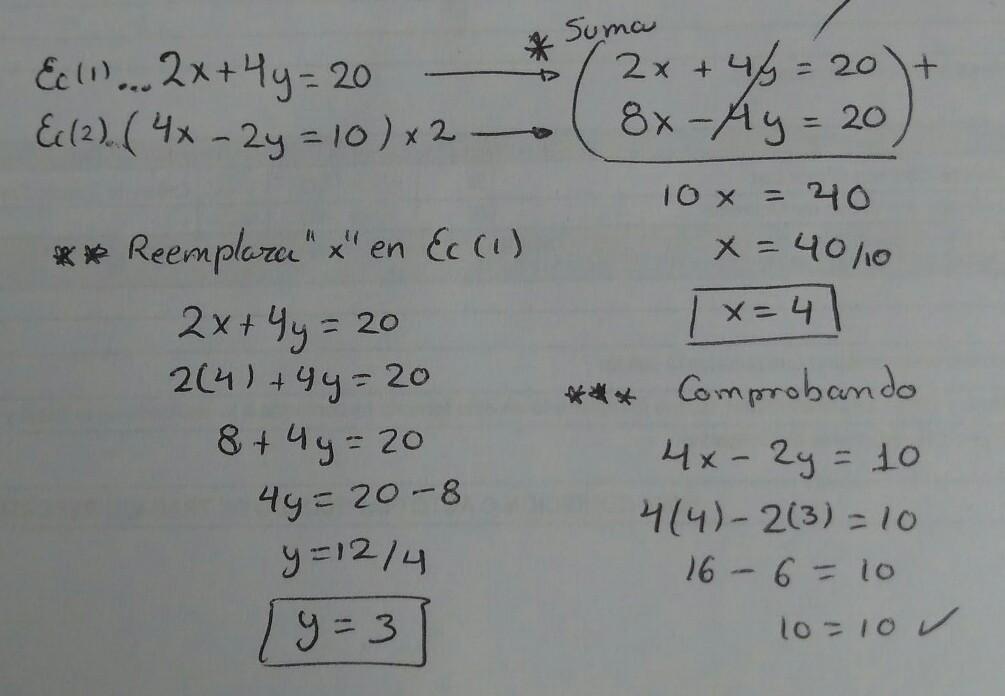 Ec(1)... 2x + 4y = 20
Ec(2).. ( 4x - 2y = 10 ) x 2
* Suma
( 2x + 4y = 20
8x - 4y = 20 ) +
10x = 40
x = 40/10
x = 4
** Reemplaza "x" en Ec(1)
2x + 4y = 20
2(4) + 4y = 20
8 + 4y = 20
4y = 20 - 8
y = 12/4
y = 3
*** Comprobando
4x - 2y = 10
4(4) - 2(3) = 10
16 - 6 = 10
10 = 10 ✓